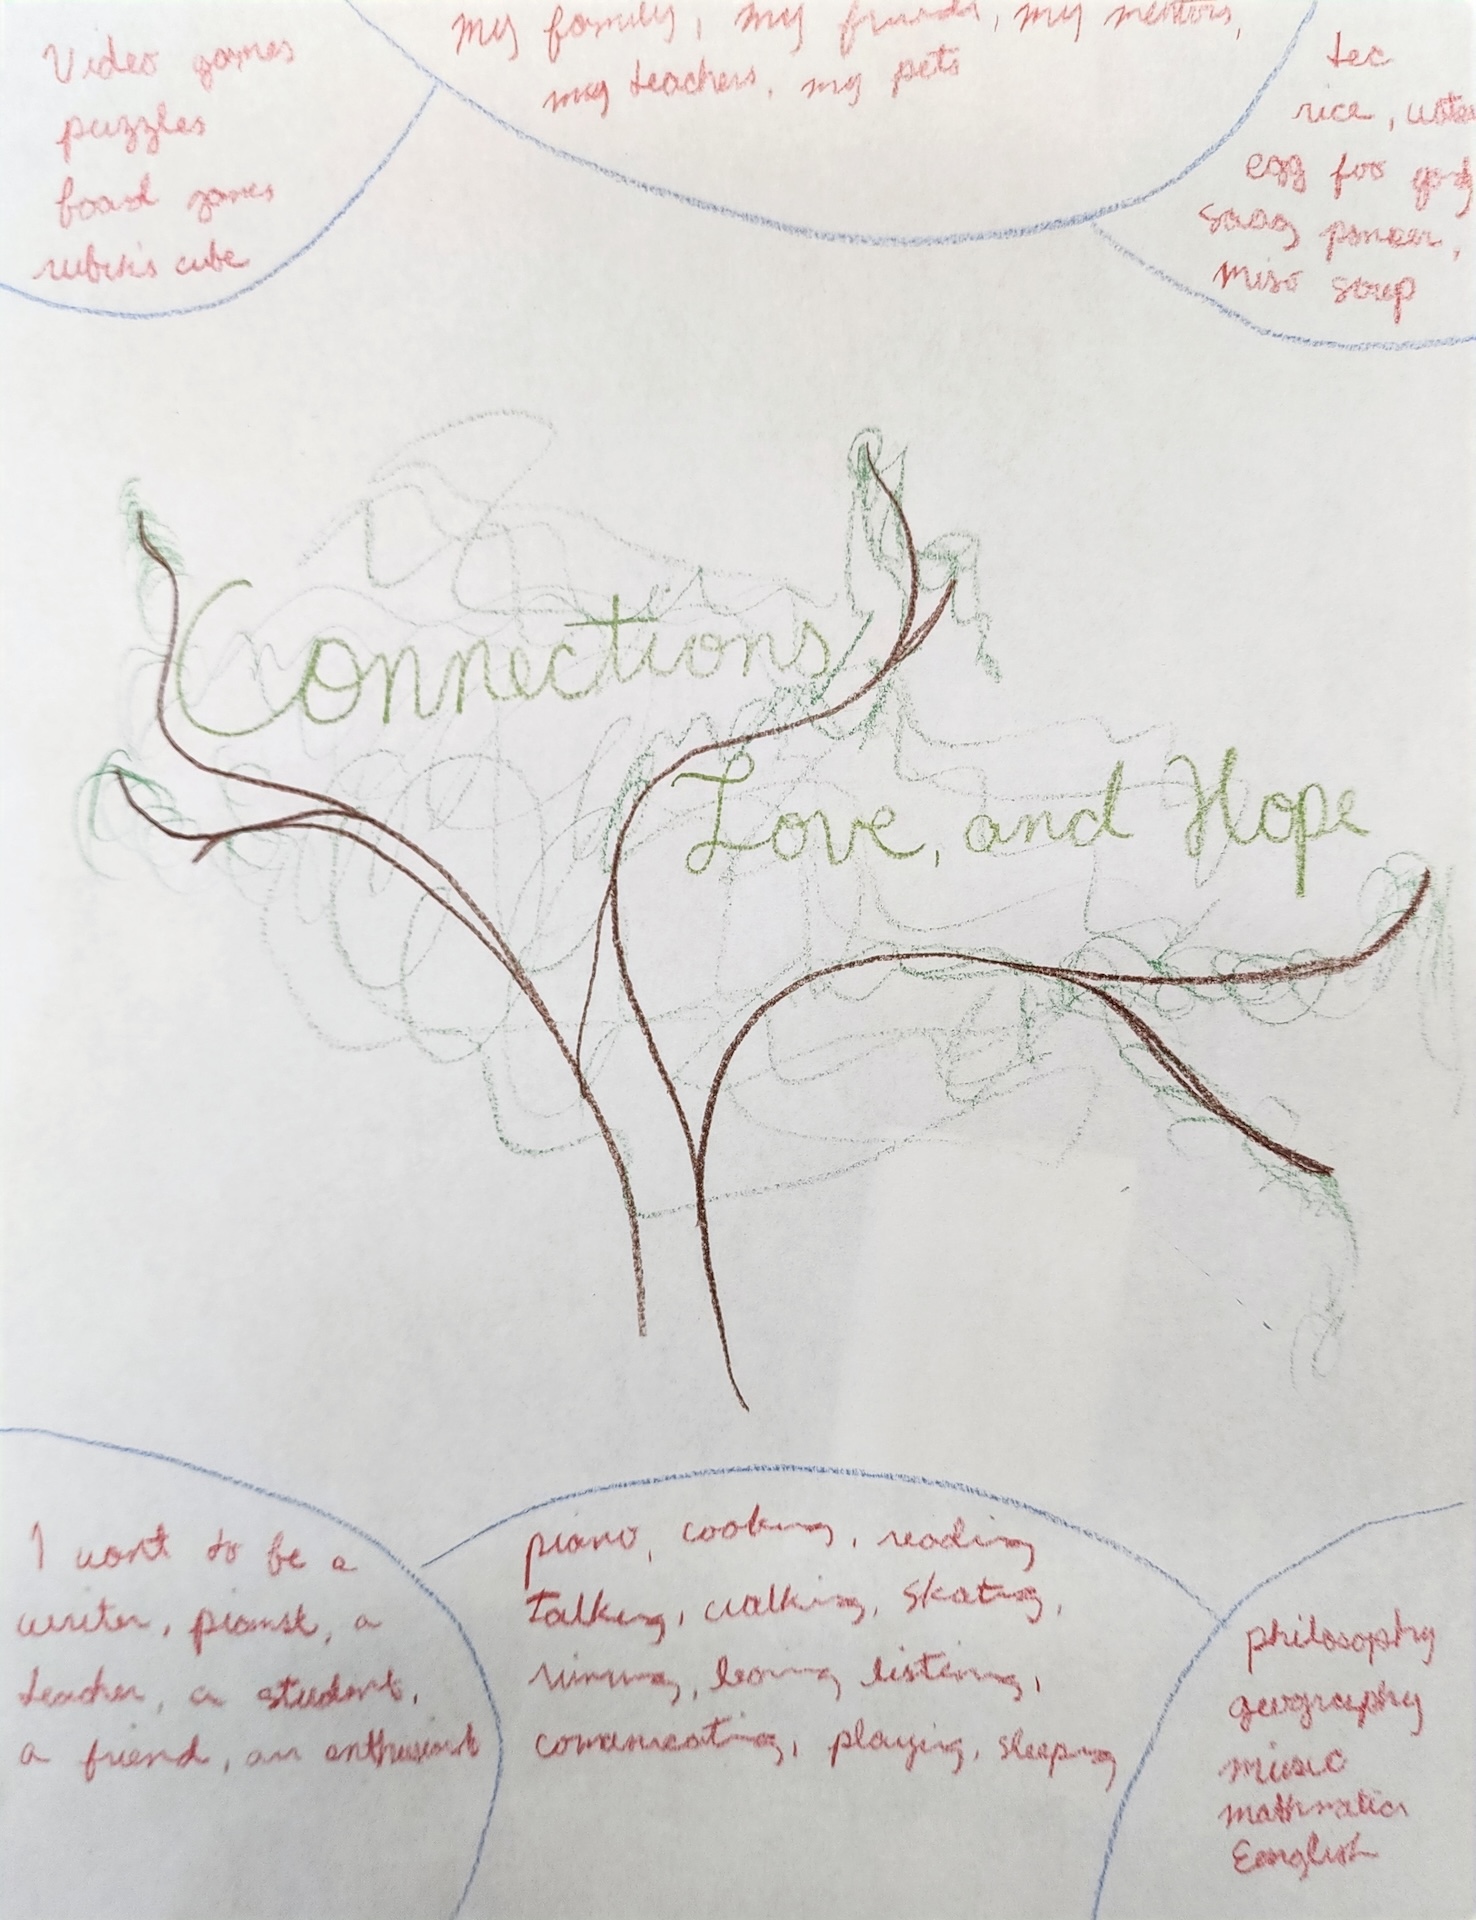 Video games
puzzles
board games
rubik's cube
my family, my friends, my mentors,
my teachers, my pets
rice, water
egg foo
Saag paneer,
miso soup
Connections
Love, and Hope
I want to be a
writer, pianist, a
teacher, a student,
a friend, an enthusiast
piano, cooking, reading
talking, walking, skating,
listening,
playing, sleeping
philosophy
geography
music
mathmatics
Eenglish